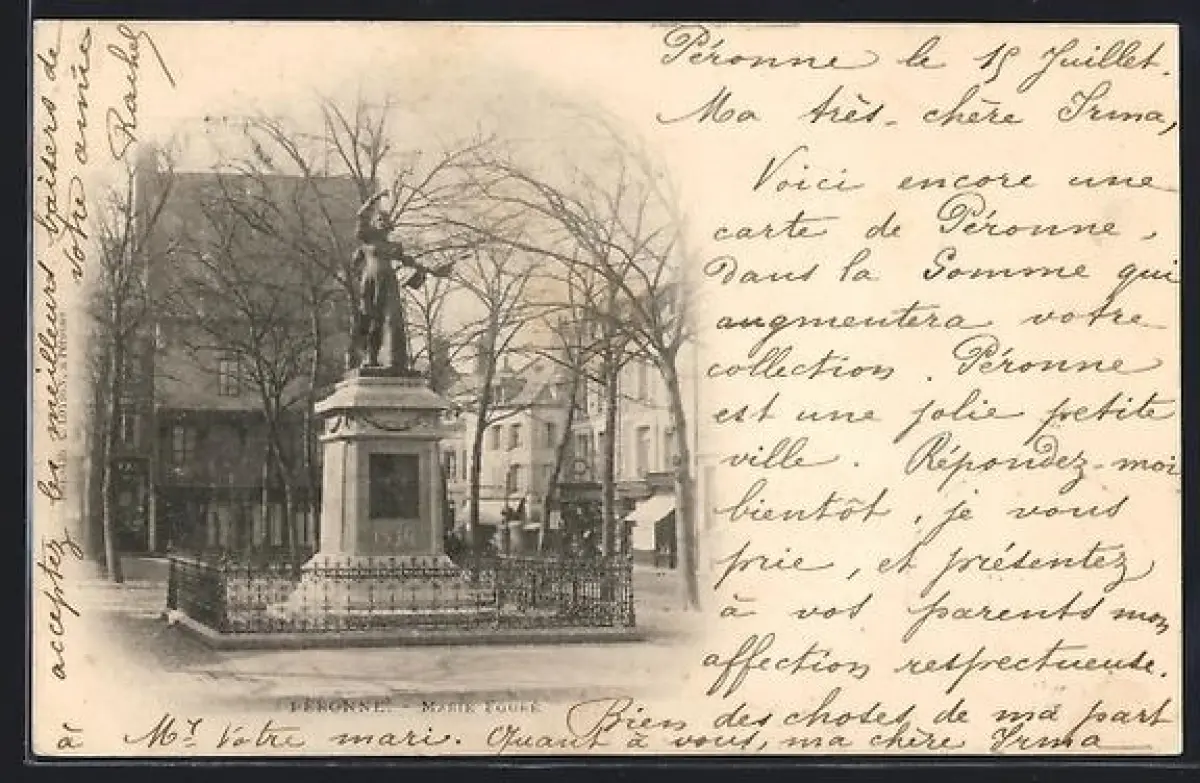 Péronne le 15 Juillet.
Ma très-chère Irma,
Voici encore une
carte de Péronne,
Dans la Somme qui
augmentera votre
collection. Péronne
est une jolie petite
ville. Répondez-moi
bientôt, je vous
prie, et présentez
à vos parents mon
affection respectueuse.
Bien des choses de ma part
à Mr. Votre mari. Quant à vous, ma chère Irma
acceptez les meilleurs baisers de
votre amie
Rachel
PÉRONNE. - MARIE FOURÉ